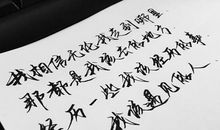 我相信无论我走到哪里
那都是我该去的地方
经历一些我该经历的事
我该遇见的人